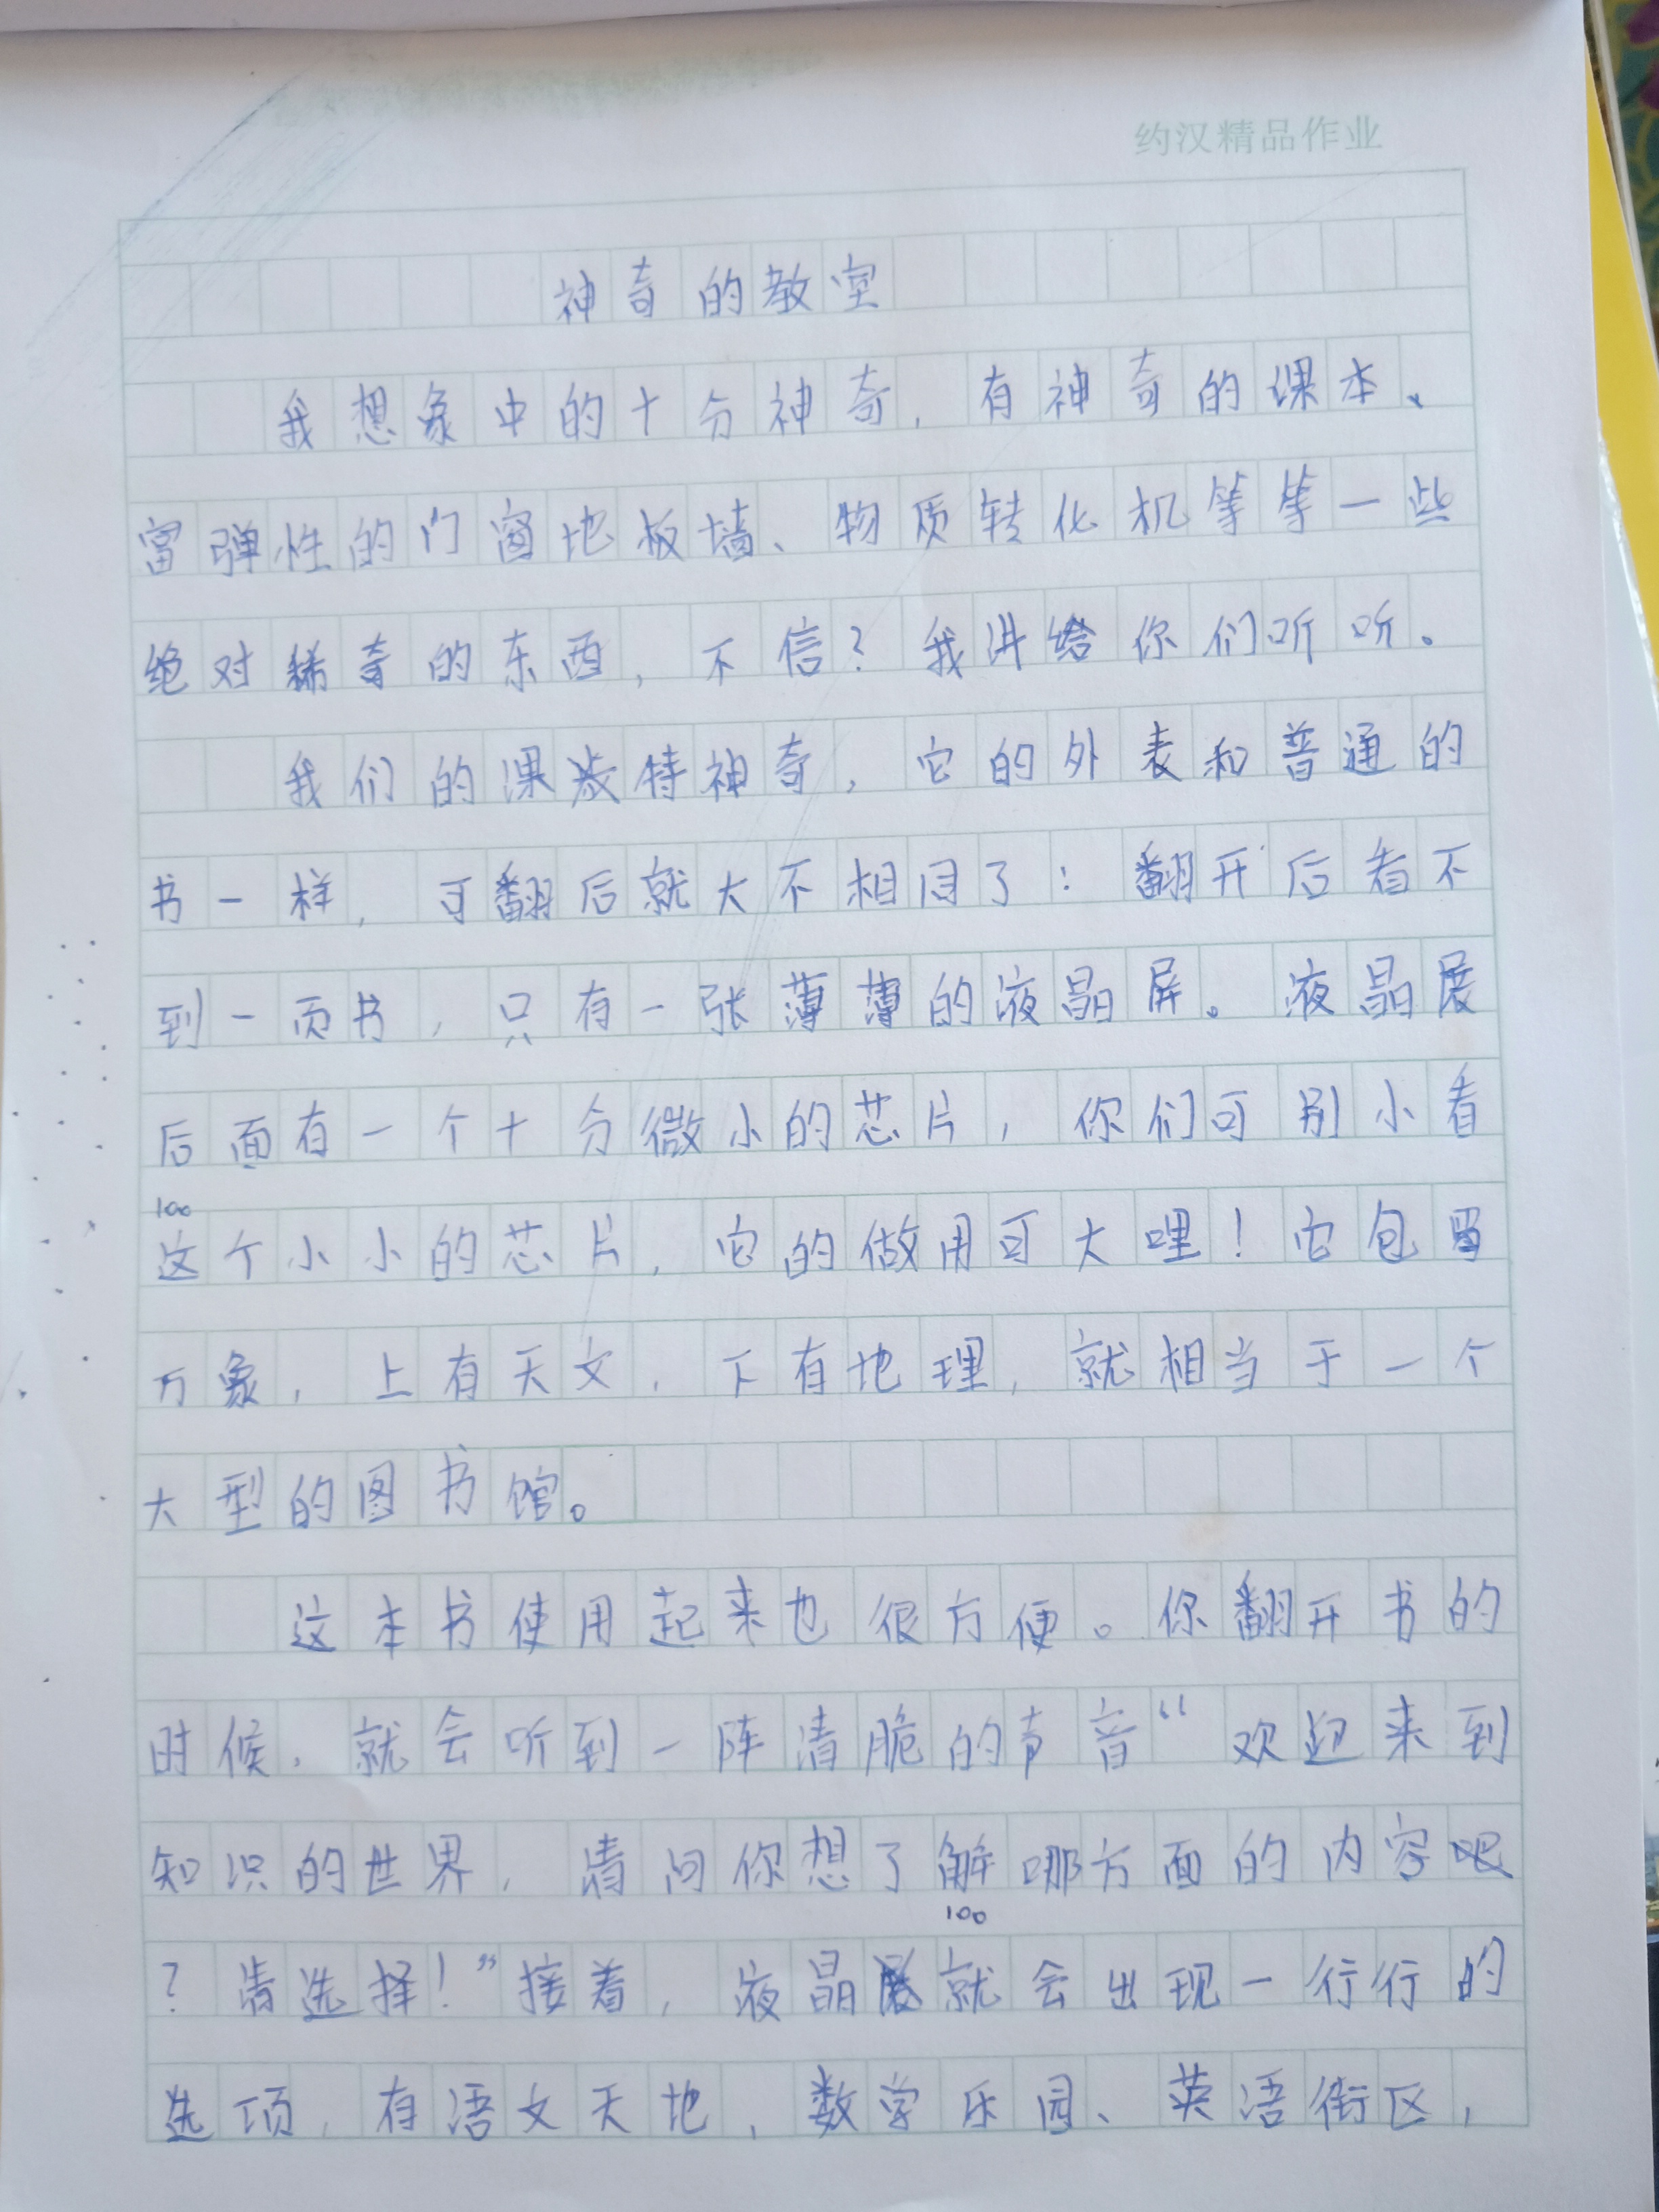 约汉精品作业
神奇的教室
我想象中的十分神奇，有神奇的课本、
富弹性的门窗地板墙、物质转化机等等一些
绝对稀奇的东西，不信？我讲给你们听听。
我们的课表特神奇，它的外表和普通的
书一样，可翻后就大不相同了：翻开后看不
到一页书，只有一张薄薄的液晶屏。液晶展
后面有一个十分微小的芯片，你们可别小看
100
这个小小的芯片，它的做用可大哩！它包
万象，上有天文，下有地理，就相当于一个
大型的图书馆。
这本书使用起来也很方便。你翻开书的
时候，就会听到一阵清脆的声音“欢迎来到
知识的世界，请问你想了解哪方面的内容呢
100
？请选择！”接着，液晶展就会出现一行行的
选项，有语文天地，数学乐园、英语街区，